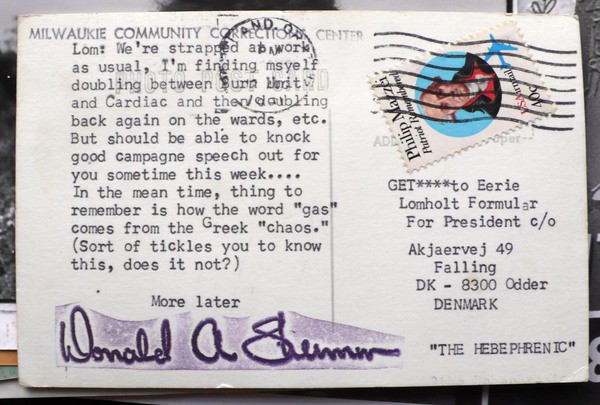 MILWAUKIE COMMUNITY CORRECTIONS CENTER
Lom: We're strapped at work
as usual, I'm finding msyelf
doubling between Burn Unit
and Cardiac and then doubling
back again on the wards, etc.
But should be able to knock
good campagne speech out for
you sometime this week....
In the mean time, thing to
remember is how the word "gas"
comes from the Greek "chaos."
(Sort of tickles you to know
this, does it not?)
More later
Donald A
PHOTO POST CARD
OR
PM
Philip Mazzei
Patriot Remembered
USAirmail 40c
GET****to Eerie
Lomholt Formular
For President c/o
Akjaervej 49
Falling
DK - 8300 Odder
DENMARK
"THE HEBEPHRENIC"